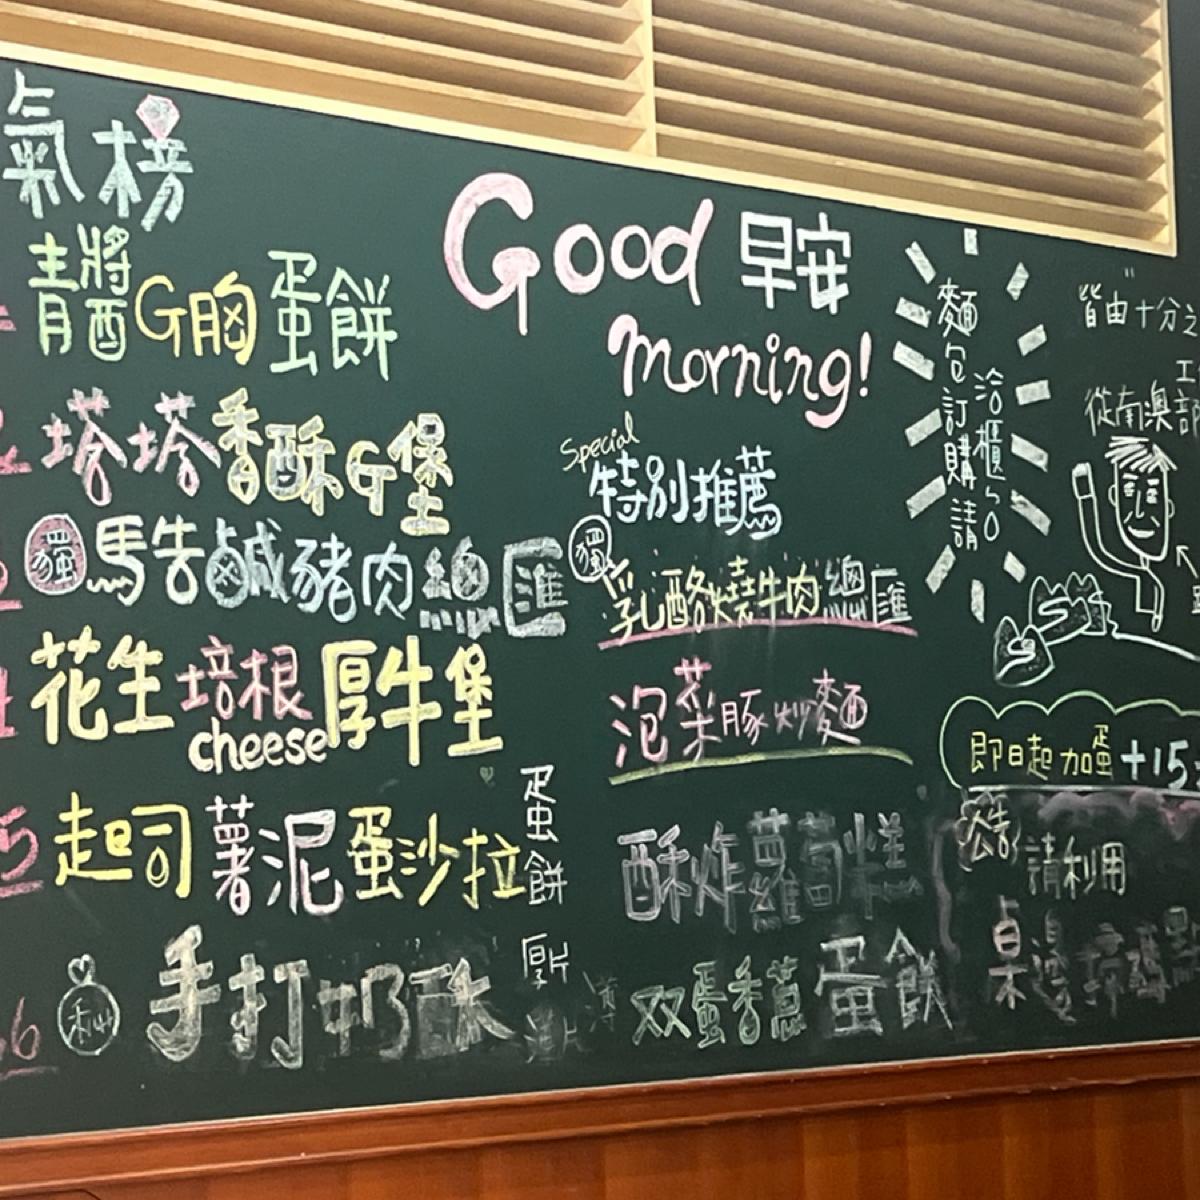 氣榜
青醬G胸蛋餅
塔塔香酥G堡
獨 馬告鹹豬肉總匯
花生培根cheese厚牛堡
5 起司薯泥蛋沙拉蛋餅
6 手打奶酥 厚片
Good 早安
Morning!
Special
特別推薦
獨 乳酪燒牛肉總匯
泡菜豚炒麵
酥炸蘿蔔糕
双蛋香蔥蛋餅
麵包訂購請
洽櫃
皆由十分之
從南澳部
即日起 加蛋+15
公告 請利用
桌邊掃碼